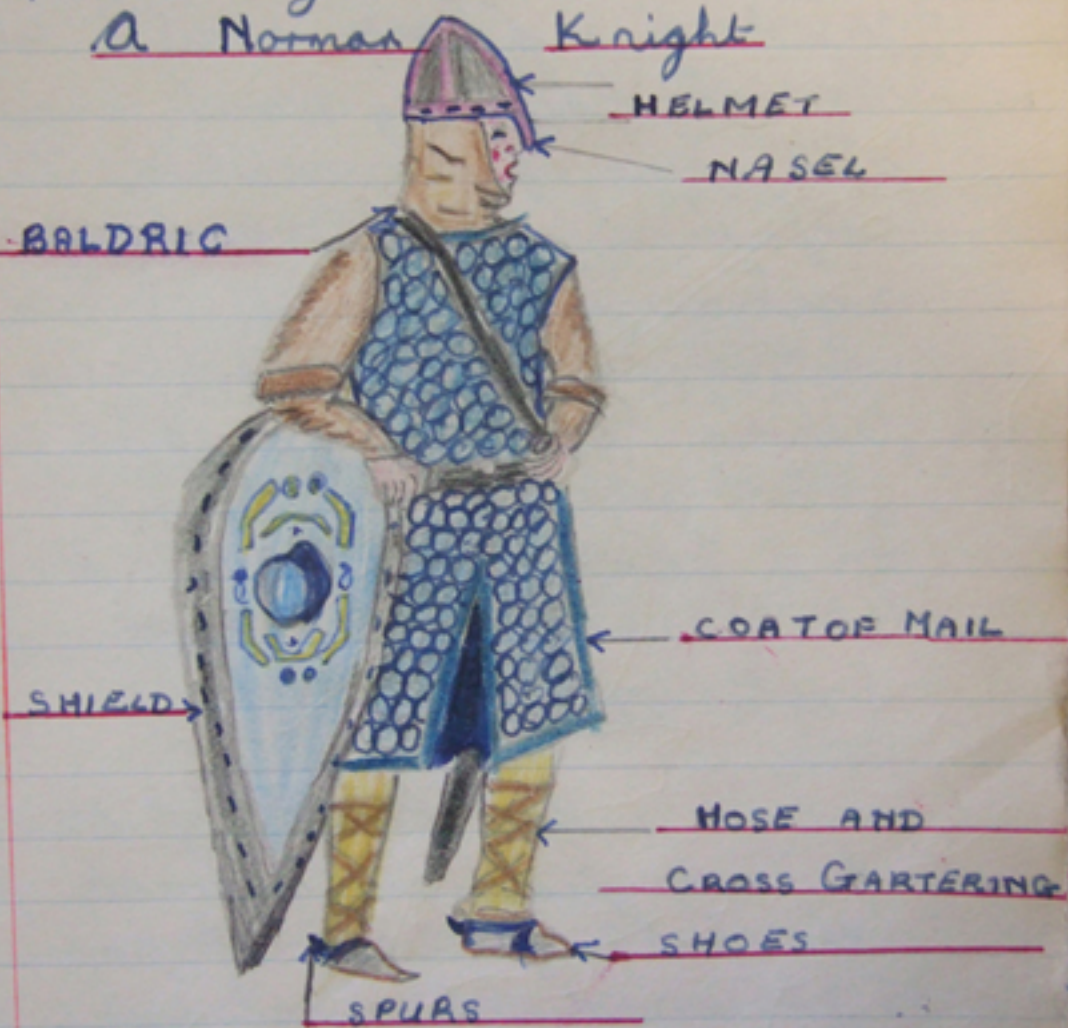 A Norman Knight
HELMET
NASEL
BALDRIC
COAT OF MAIL
SHIELD
HOSE AND
CROSS GARTERING
SHOES
SPURS